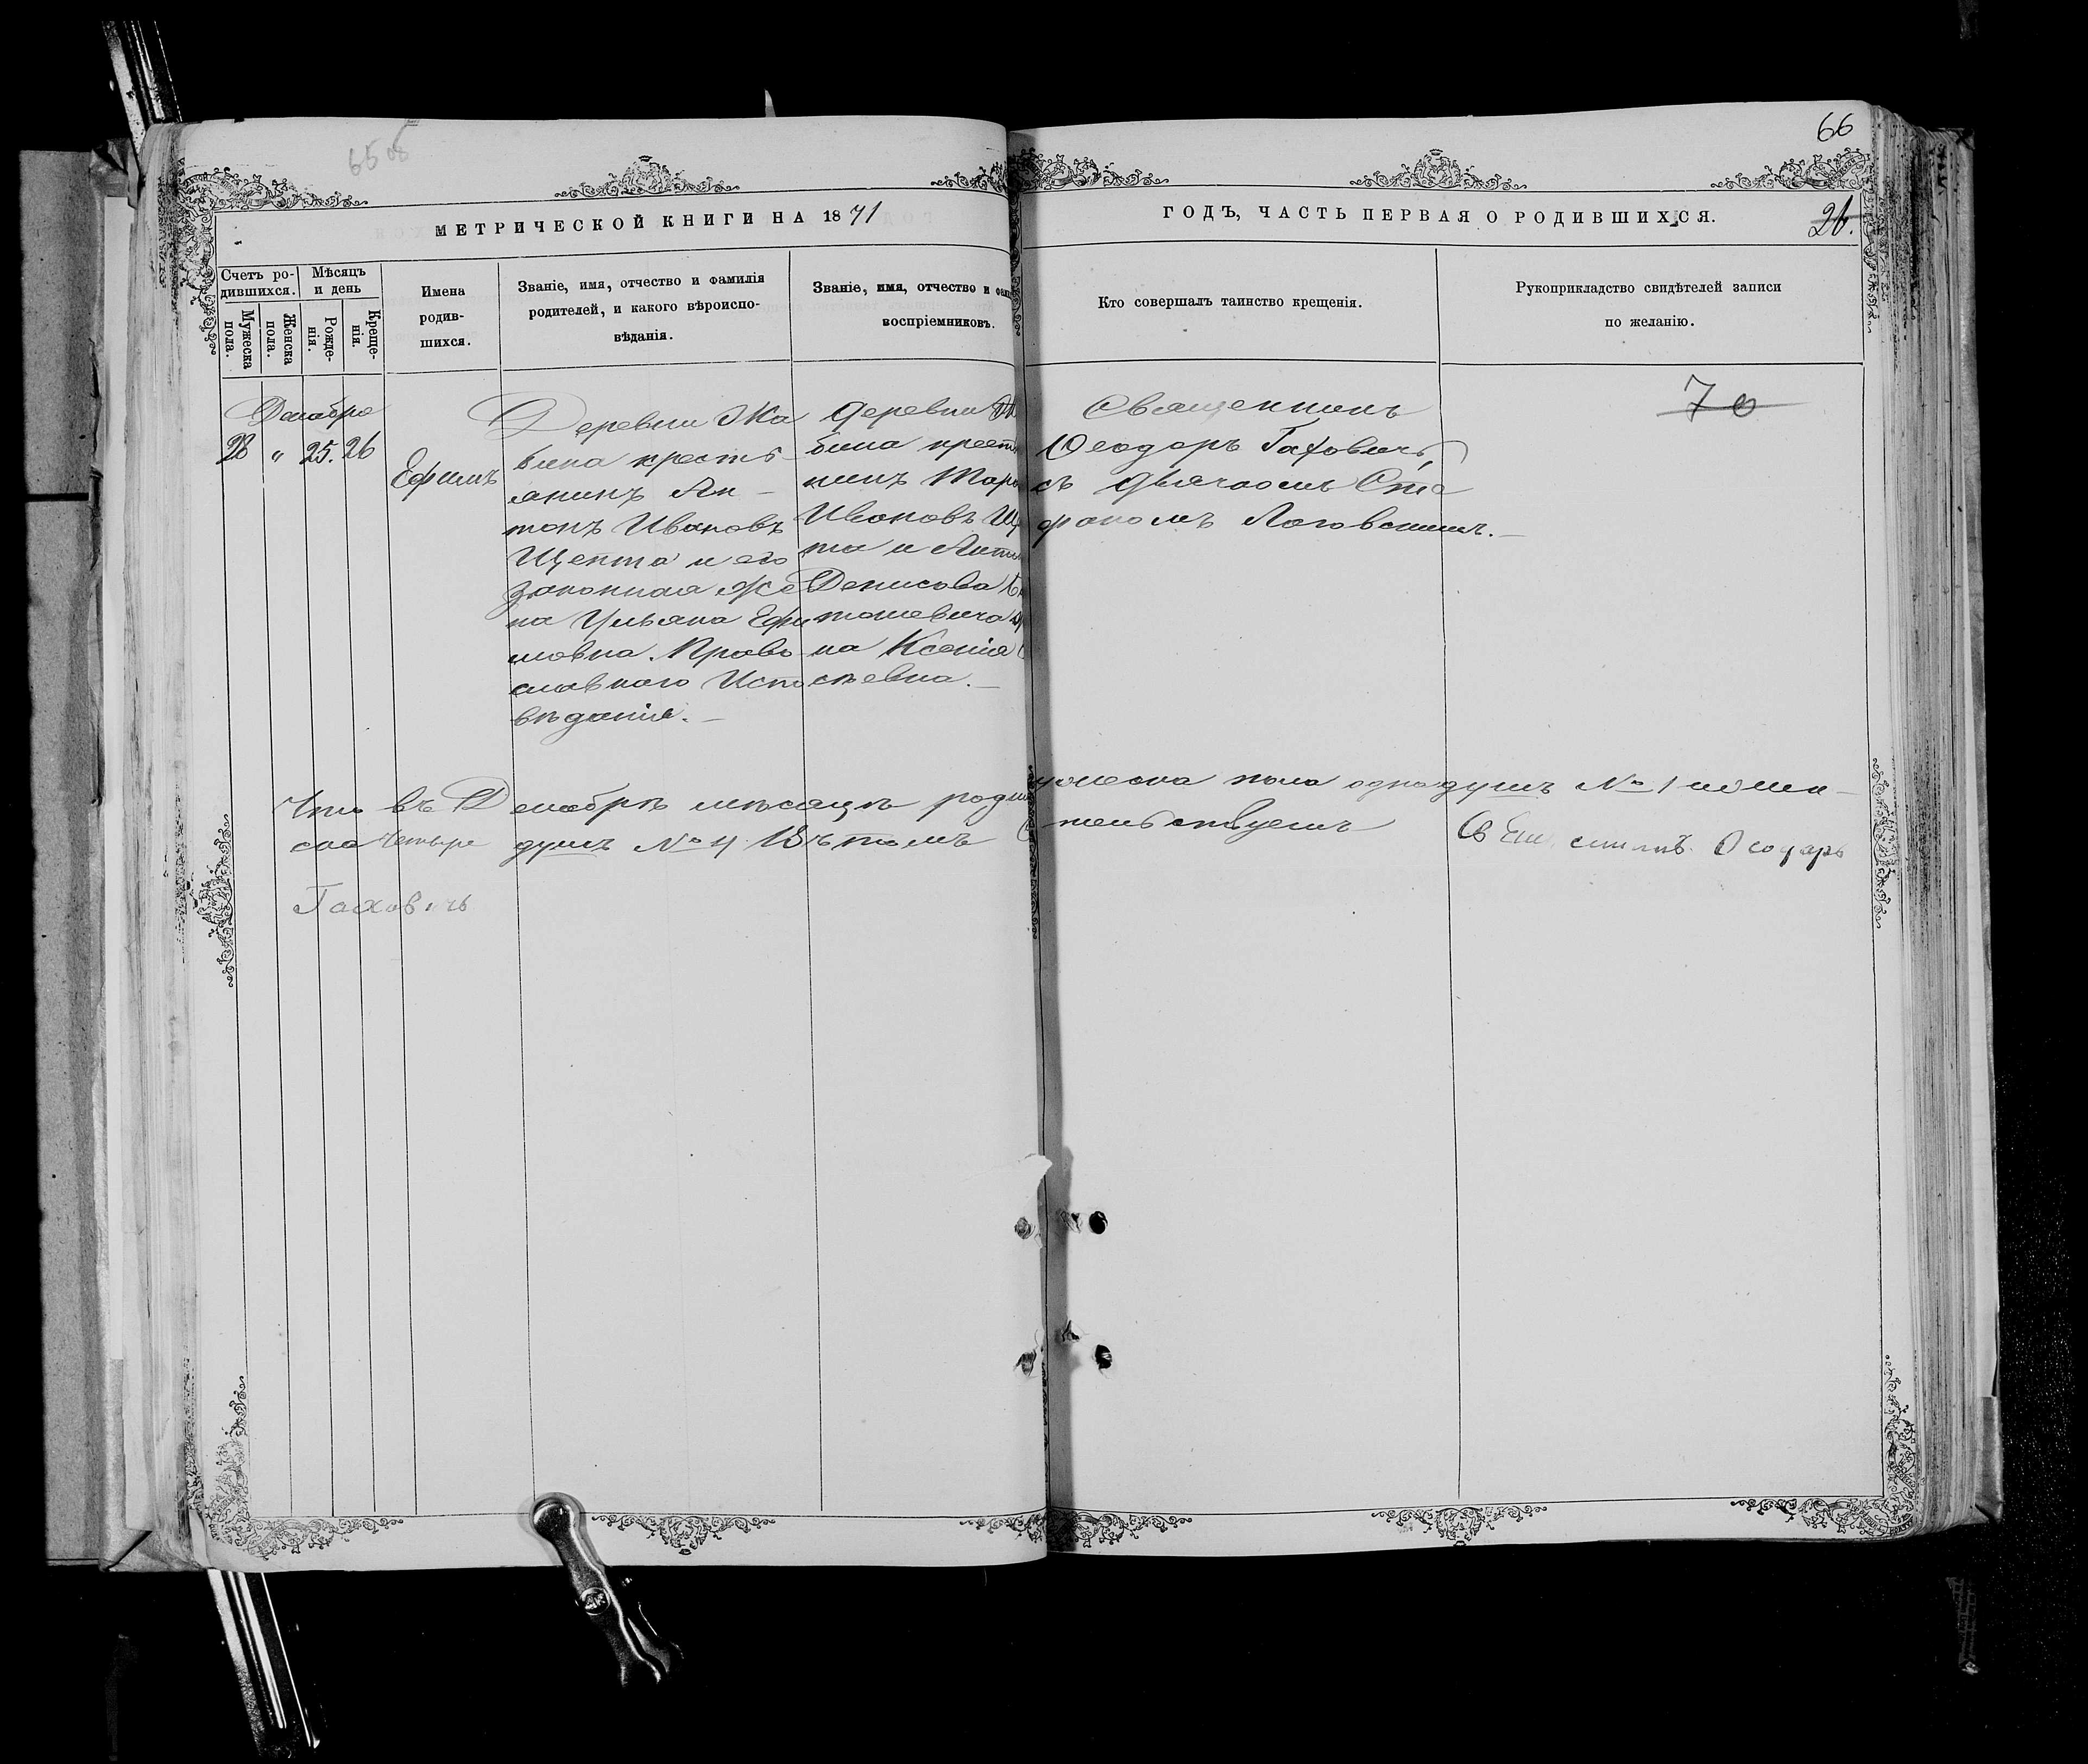 65 об
66
МЕТРИЧЕСКОЙ КНИГИ НА 1871
ГОДЪ, ЧАСТЬ ПЕРВАЯ О РОДИВШИХСЯ.
26.
Счетъ ро-
дившихся.
Мѣсяцъ
и день
Мужеска
пола.
Женска
пола.
Рожде-
нія.
Креще-
нія.
Имена
родив-
шихся.
Званіе, имя, отчество и фамилія
родителей, и какого вѣроиспо-
вѣданія.
Званіе, имя, отчество и фам
воспріемниковъ.
Кто совершалъ таинство крещенія.
Рукоприкладство свидѣтелей записи
по желанію.
70
Декабрь
28 " 25. 26
Ефимъ
Деревни Жа
бина кресть-
янинъ Ан-
тонъ Ивановъ
Щепта и его
законная же
на Ульяна Ефи
мовна. Право
славнаго Испо
вѣданія.
деревни
бина крест
нинъ Мар
Ивановъ Щ
та и Анто
Денисова
тошевича
на Ксенія
сѣевна.
Священникъ
Ѳеодоръ Гаховичъ,
съ дьячкомъ Сте
фаномъ Лаговскимъ.
Что въ Декабрѣ мѣсяцѣ роди
жеска пола одна душъ № 1 и жен-
ска четыре душъ № 4 Въ томъ
тельствуетъ
Священникъ Ѳеодоръ
Гаховичъ